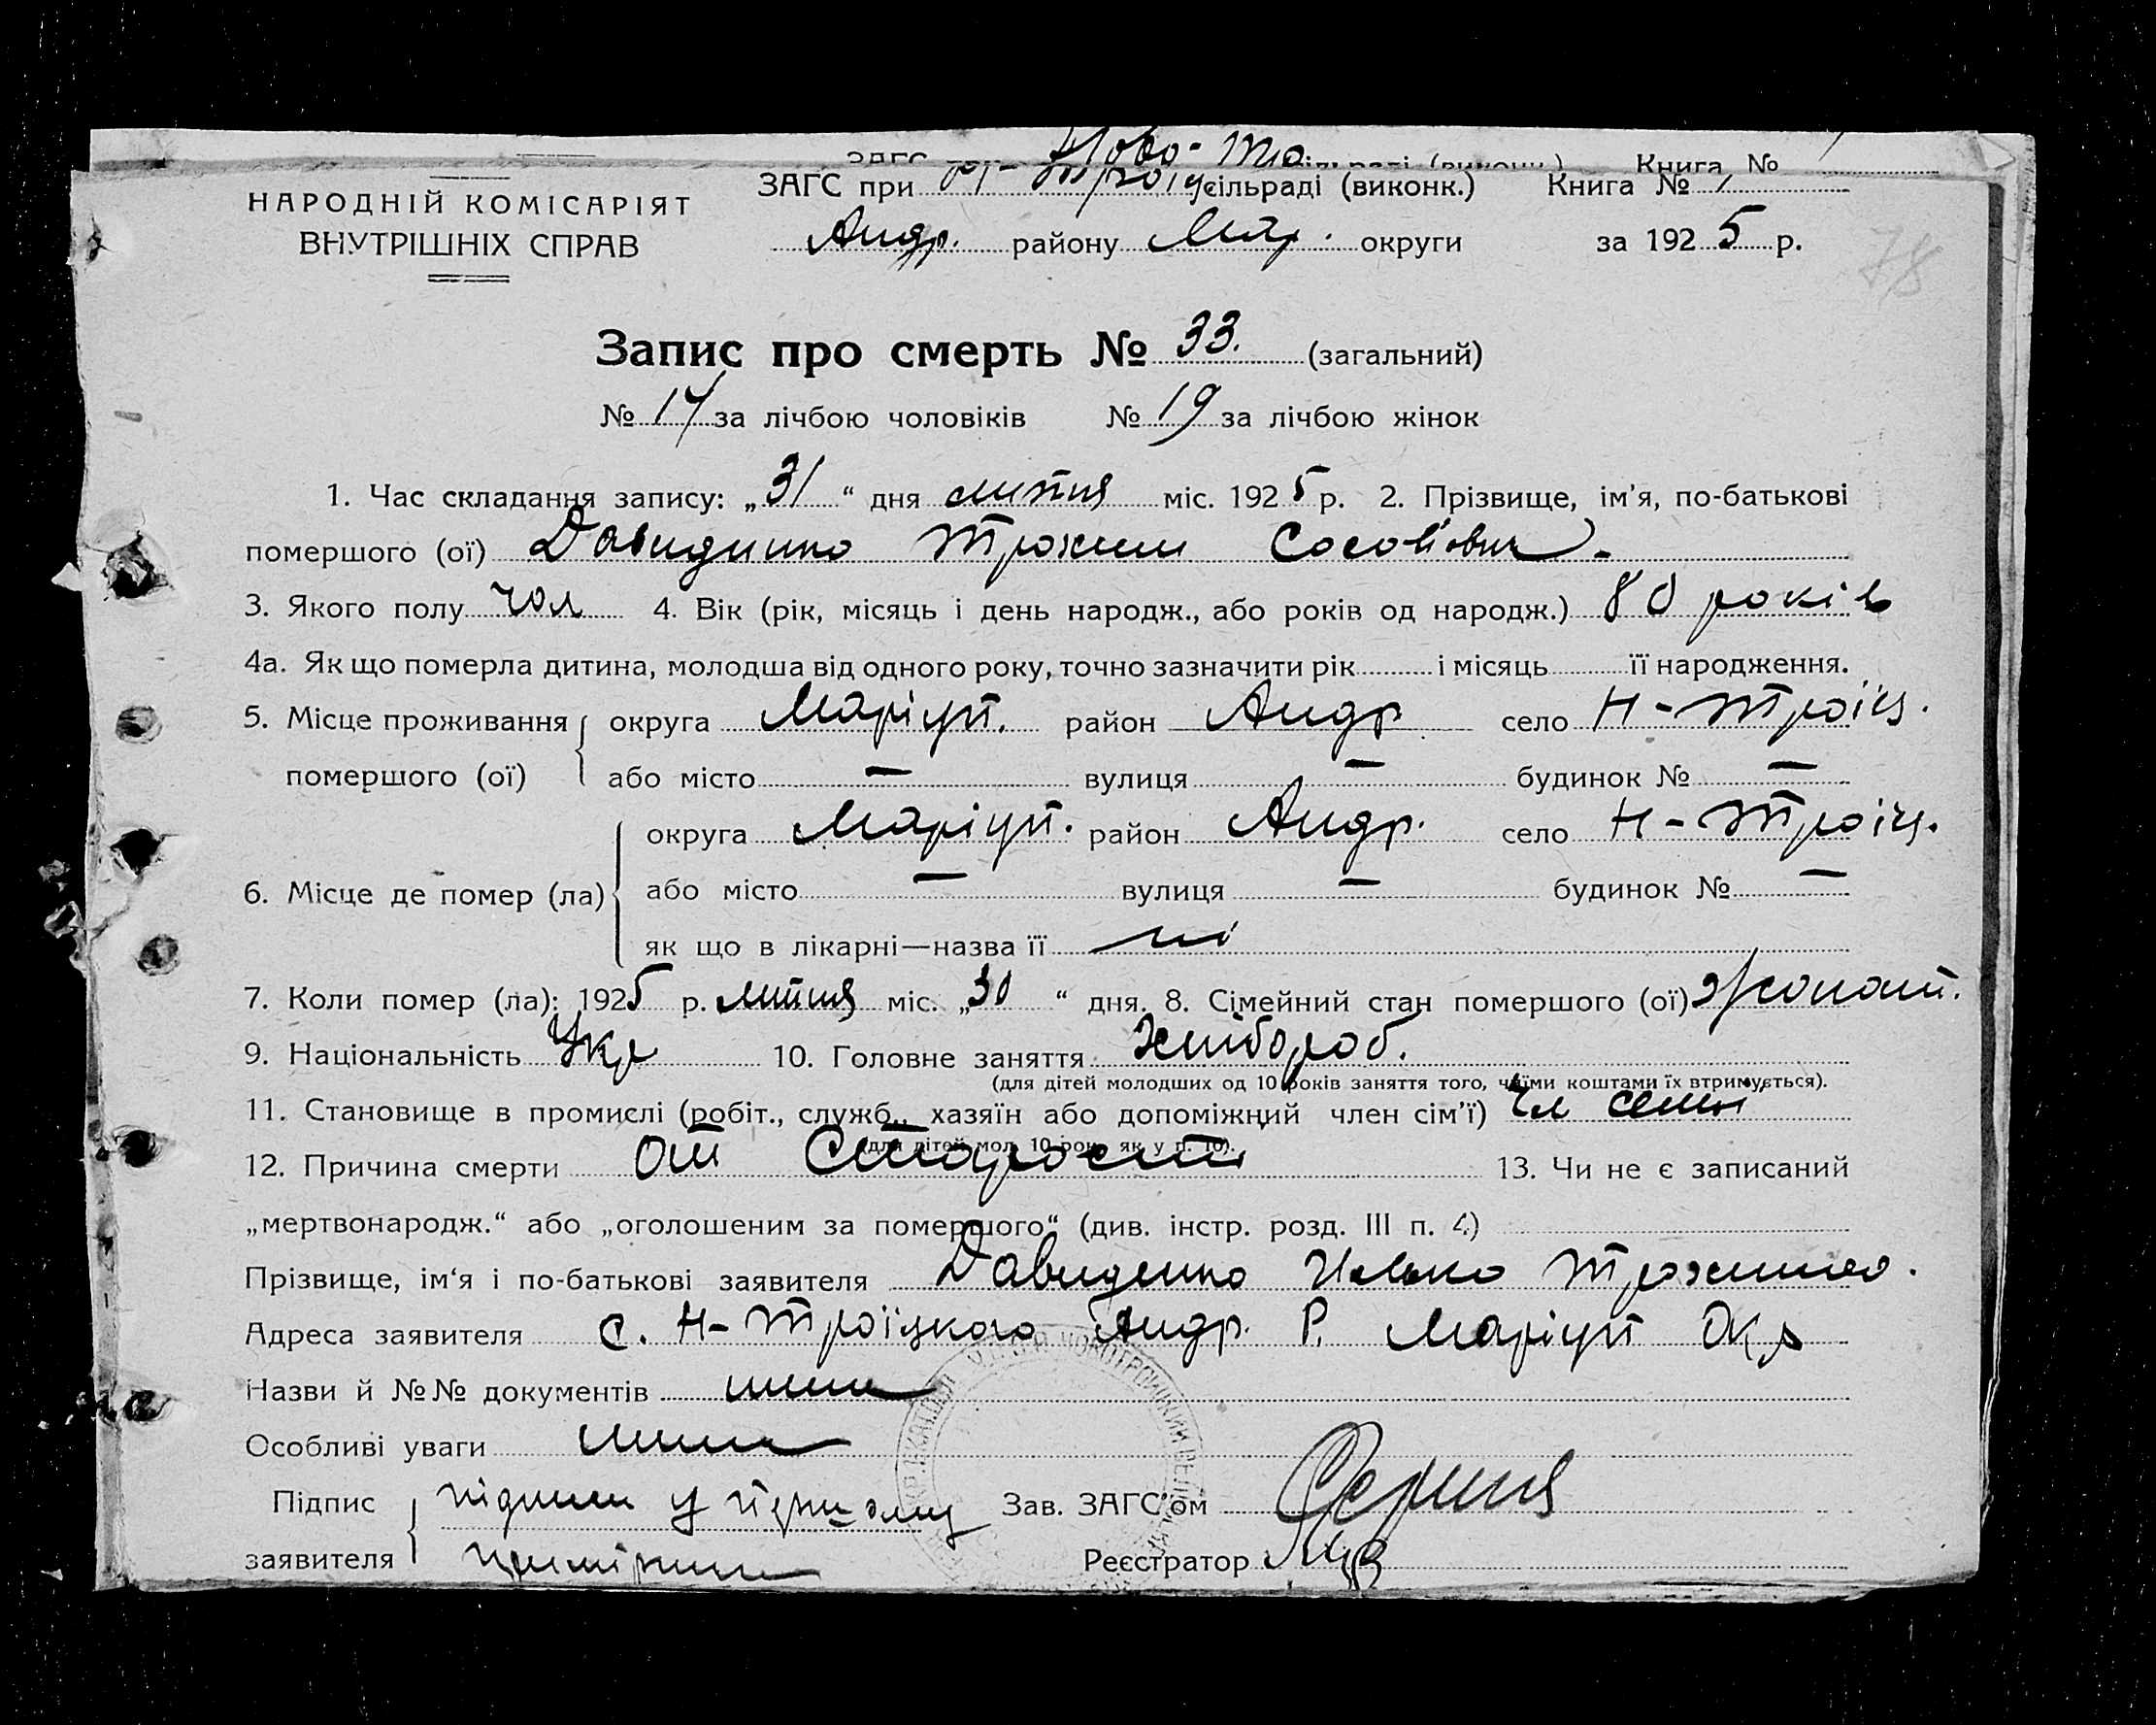 Ново-Тро
ЗАГС при Н-Троїц сільраді (виконк.) Книга №
НАРОДНІЙ КОМІСАРІЯТ
ВНУТРІШНІХ СПРАВ
Андр. району Мар. округи за 1925 р.
78
Запис про смерть № 33. (загальний)
№ 14 за лічбою чоловіків № 19 за лічбою жінок
1. Час складання запису: „31“ дня липня міс. 1925 р. 2. Прізвище, ім'я, по-батькові
помершого (ої) Давиденко Трохим
3. Якого полу чол 4. Вік (рік, місяць і день народж., або років од народж.) 80 років
4а. Як що померла дитина, молодша від одного року, точно зазначити рік і місяць її народження.
5. Місце проживання округа Маріуп. район Андр село Н-Троїц.
помершого (ої) або місто — вулиця — будинок № —
округа Маріуп. район Андр. село Н-Троїц.
6. Місце де помер (ла) або місто — вулиця — будинок № —
як що в лікарні—назва її ні
7. Коли помер (ла): 1925 р. липня міс. „30“ дня. 8. Сімейний стан помершого (ої) жонат.
9. Національність Укр 10. Головне заняття Хлібороб.
(для дітей молодших од 10 років заняття того, чиїми коштами їх втримується).
11. Становище в промислі (робіт., служб., хазяїн або допоміжний член сім'ї) Чл семьи
(для дітей мол. 10 рок. як у п. 10).
12. Причина смерти От Старости 13. Чи не є записаний
„мертвонародж.“ або „оголошеним за помершого“ (див. інстр. розд. III п. 4)
Прізвище, ім'я і по-батькові заявителя Давиденко Илько Трохимов.
Адреса заявителя с. Н-Троїцкого Андр. Р. Маріуп Окр
Назви й №№ документів нима
Особливі уваги нима
Підпис підписи у першому Зав. ЗАГС'ом
заявителя примірнику Реєстратор